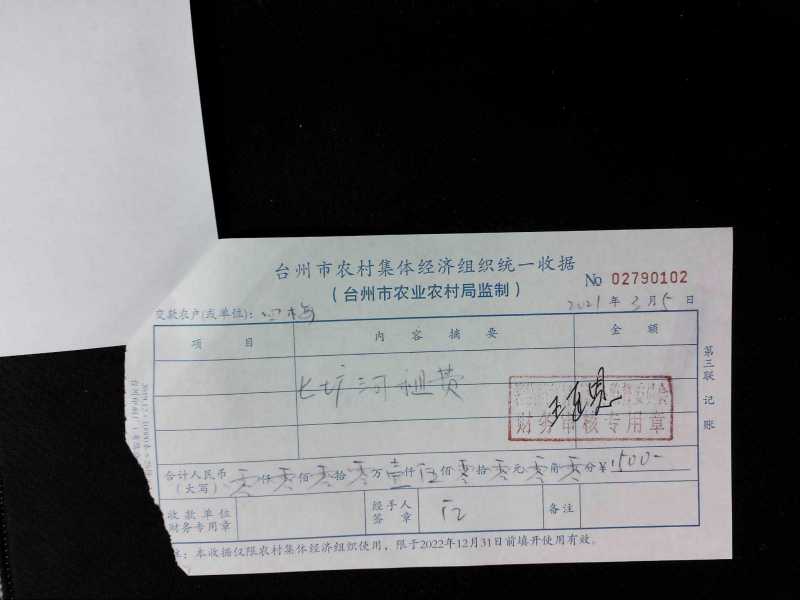 台州市农村集体经济组织统一收据
No 02790102
（台州市农业农村局监制）
2021 年 3 月 5 日
交款农户(或单位):
项 目 内 容 摘 要 金 额
河租费
财务审核专用章
合计人民币（大写） 零仟零佰零拾零万壹仟伍佰零拾零元零角零分 ¥ 1500-
收款单位财务专用章 经手人签章 备注
注：本收据仅限农村集体经济组织使用，限于2022年12月31日前填开使用有效。
第三联 记账